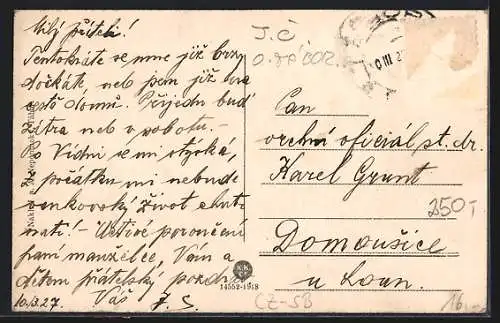 Milý příteli!
Tentokráte se mne již brzy
dočkáte, neb jsem již na
cestě domů. Přijedu buď
zítra neb v sobotu. -
Po Vídni se mi stýská,
z počátku mi nebude
venkovský život chut-
nati! Uctivé poroučení
paní manželce, Vám a
dětem přátelský pozdrav
Váš J. S.
10./3.27.
J. Č
Pan
vrchní oficiál st. dr.
Karel Grunt
250,-
Domoušice
u Loun.
14552-1918
CZ-SB
16,-